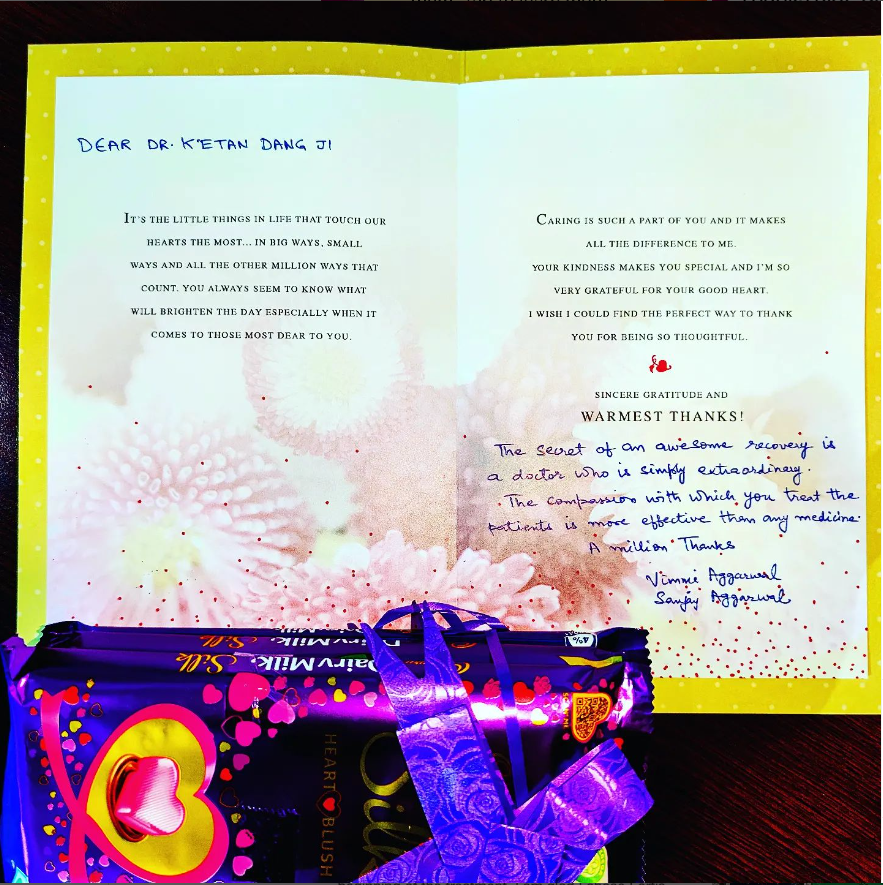 DEAR DR. KETAN DANG JI
IT'S THE LITTLE THINGS IN LIFE THAT TOUCH OUR
HEARTS THE MOST... IN BIG WAYS, SMALL
WAYS AND ALL THE OTHER MILLION WAYS THAT
COUNT. YOU ALWAYS SEEM TO KNOW WHAT
WILL BRIGHTEN THE DAY ESPECIALLY WHEN IT
COMES TO THOSE MOST DEAR TO YOU.
CARING IS SUCH A PART OF YOU AND IT MAKES
ALL THE DIFFERENCE TO ME.
YOUR KINDNESS MAKES YOU SPECIAL AND I'M SO
VERY GRATEFUL FOR YOUR GOOD HEART.
I WISH I COULD FIND THE PERFECT WAY TO THANK
YOU FOR BEING SO THOUGHTFUL.
SINCERE GRATITUDE AND
WARMEST THANKS!
The secret of an awesome recovery is
a doctor who is simply extraordinary.
The compassion with which you treat the
patients is more effective then any medicine.
A million Thanks
Vimmie Aggarwal
Sanjay Aggarwal
Dairy Milk Silk
Dairy Milk Silk
Silk
HEART BLUSH